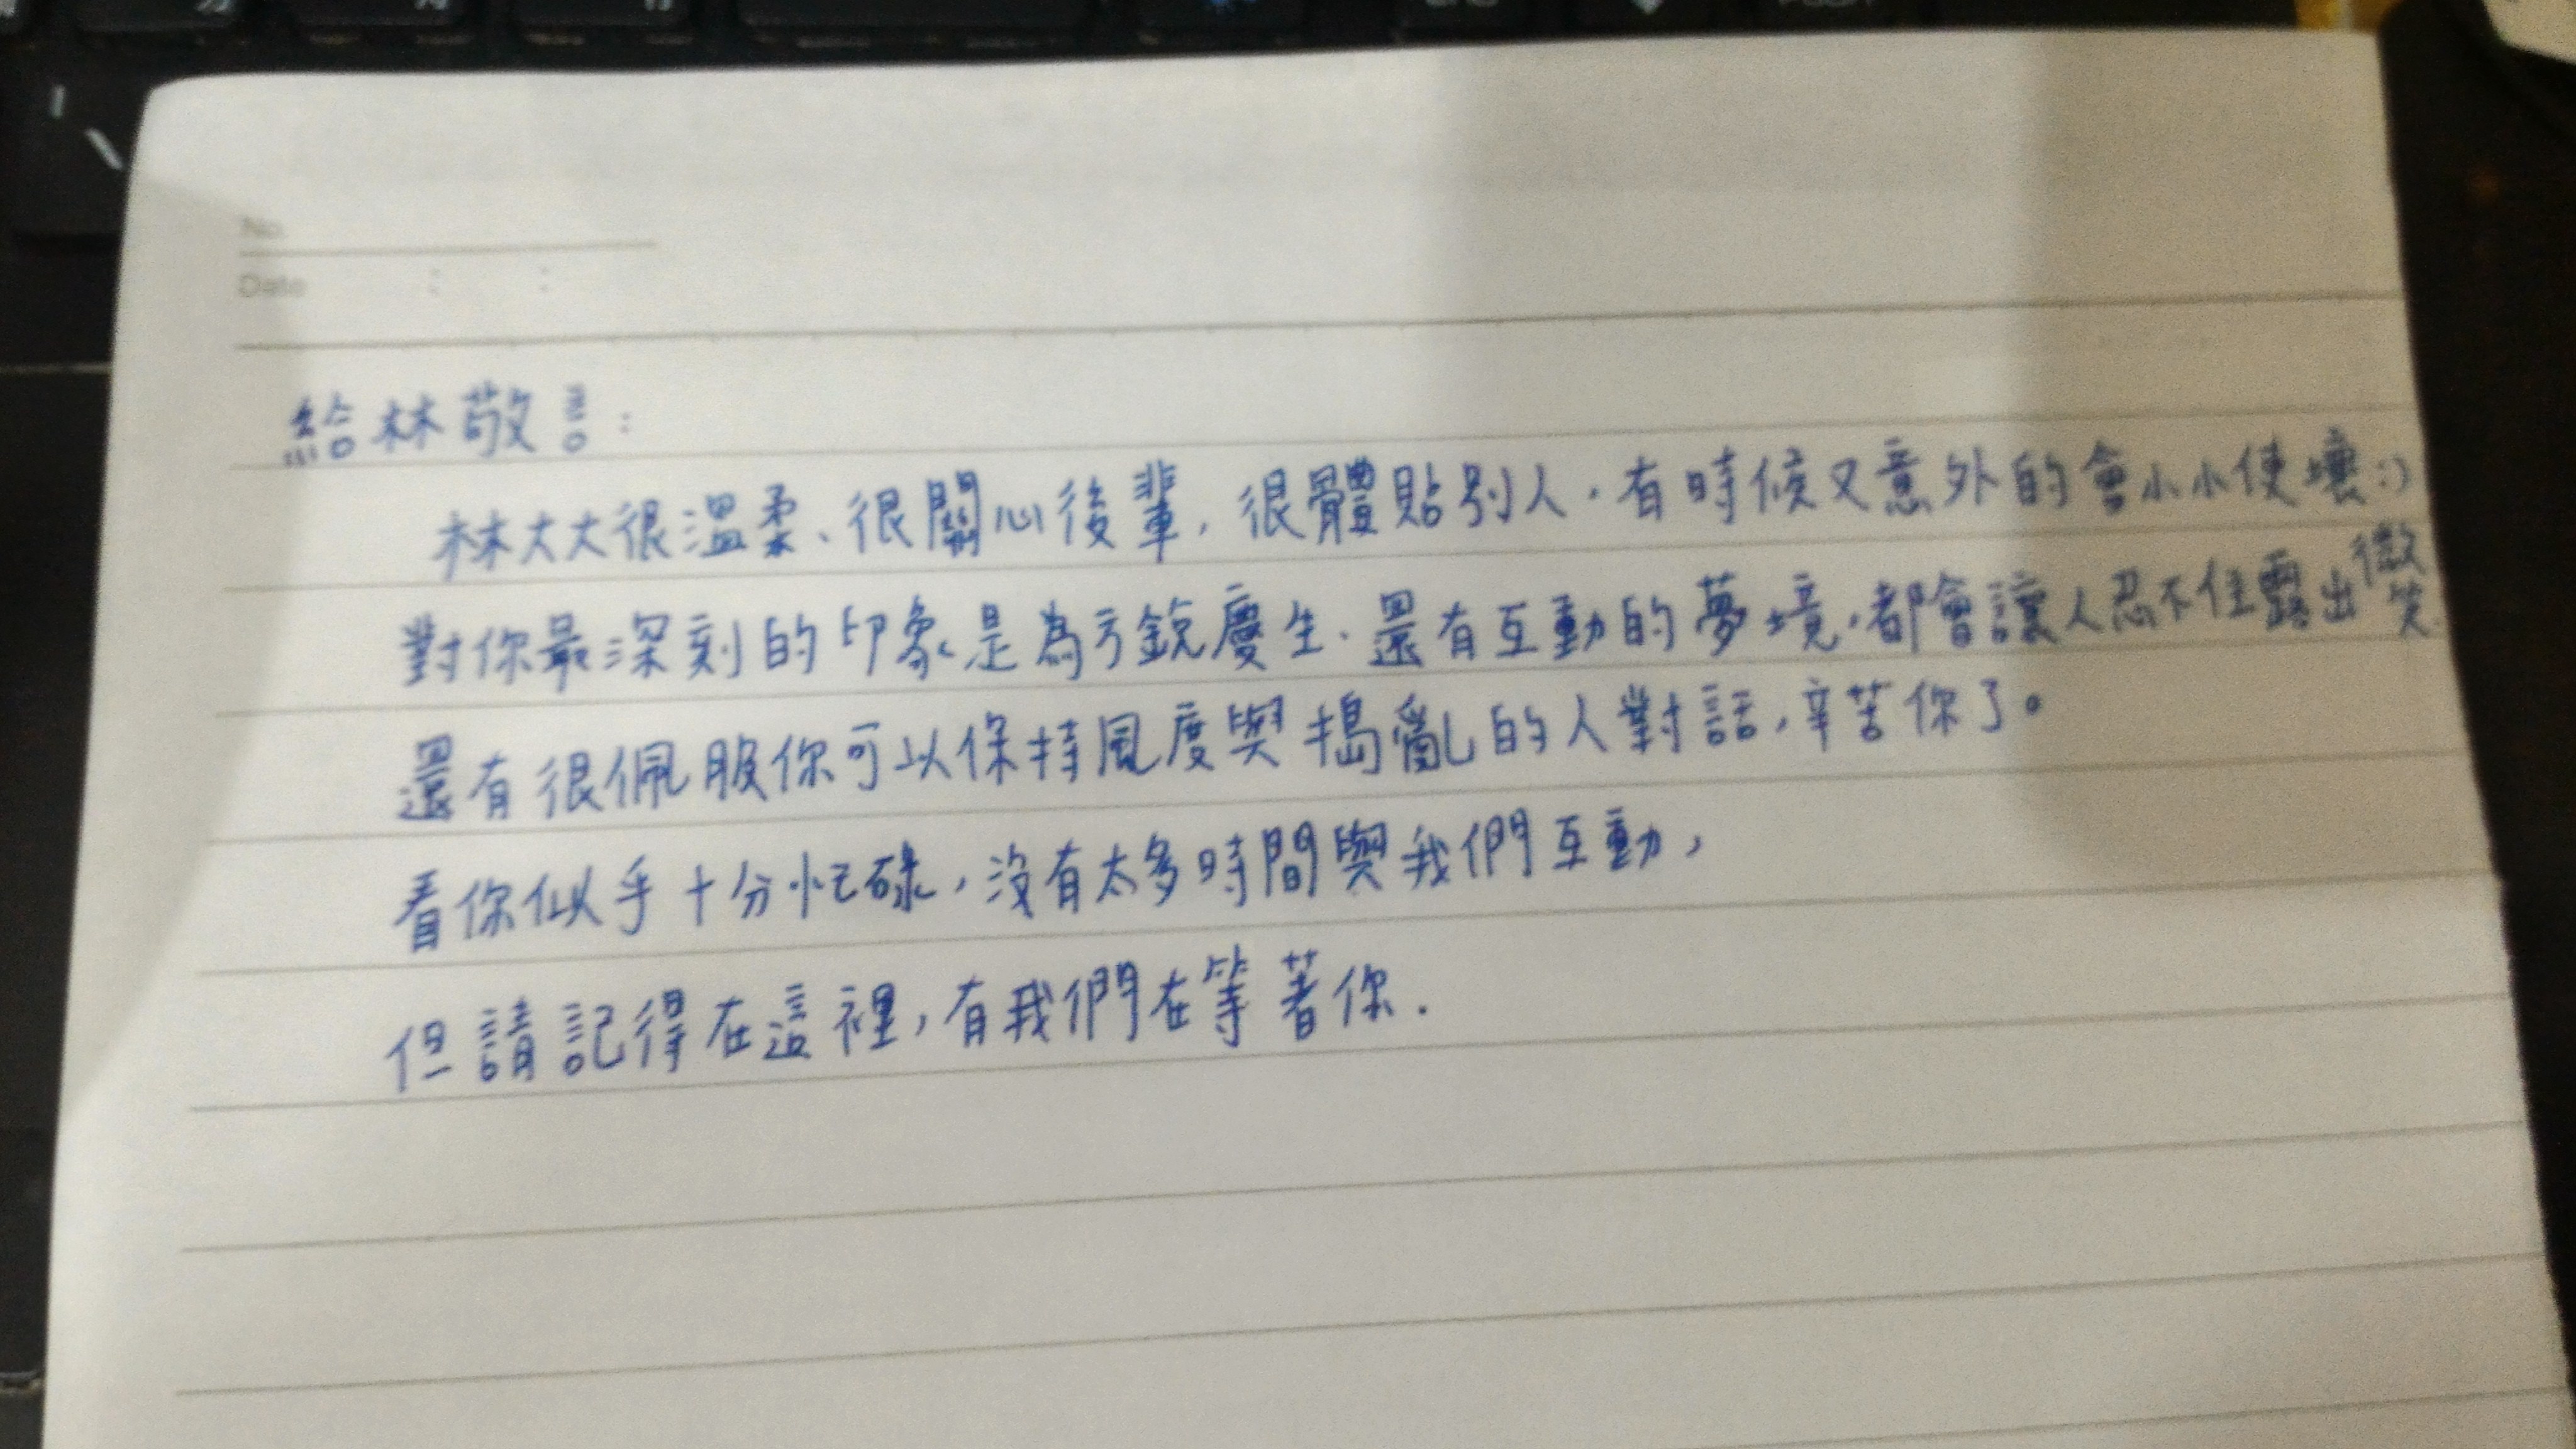 No.
Date : :
給林敬言:
林大大很溫柔、很關心後輩,很體貼別人,有時候又意外的會小小使壞:)
對你最深刻的印象是為方銳慶生、還有互動的夢境,都會讓人忍不住露出微笑
還有很佩服你可以保持風度與搗亂的人對話,辛苦你了。
看你似乎十分忙碌,沒有太多時間與我們互動,
但請記得在這裡,有我們在等著你.